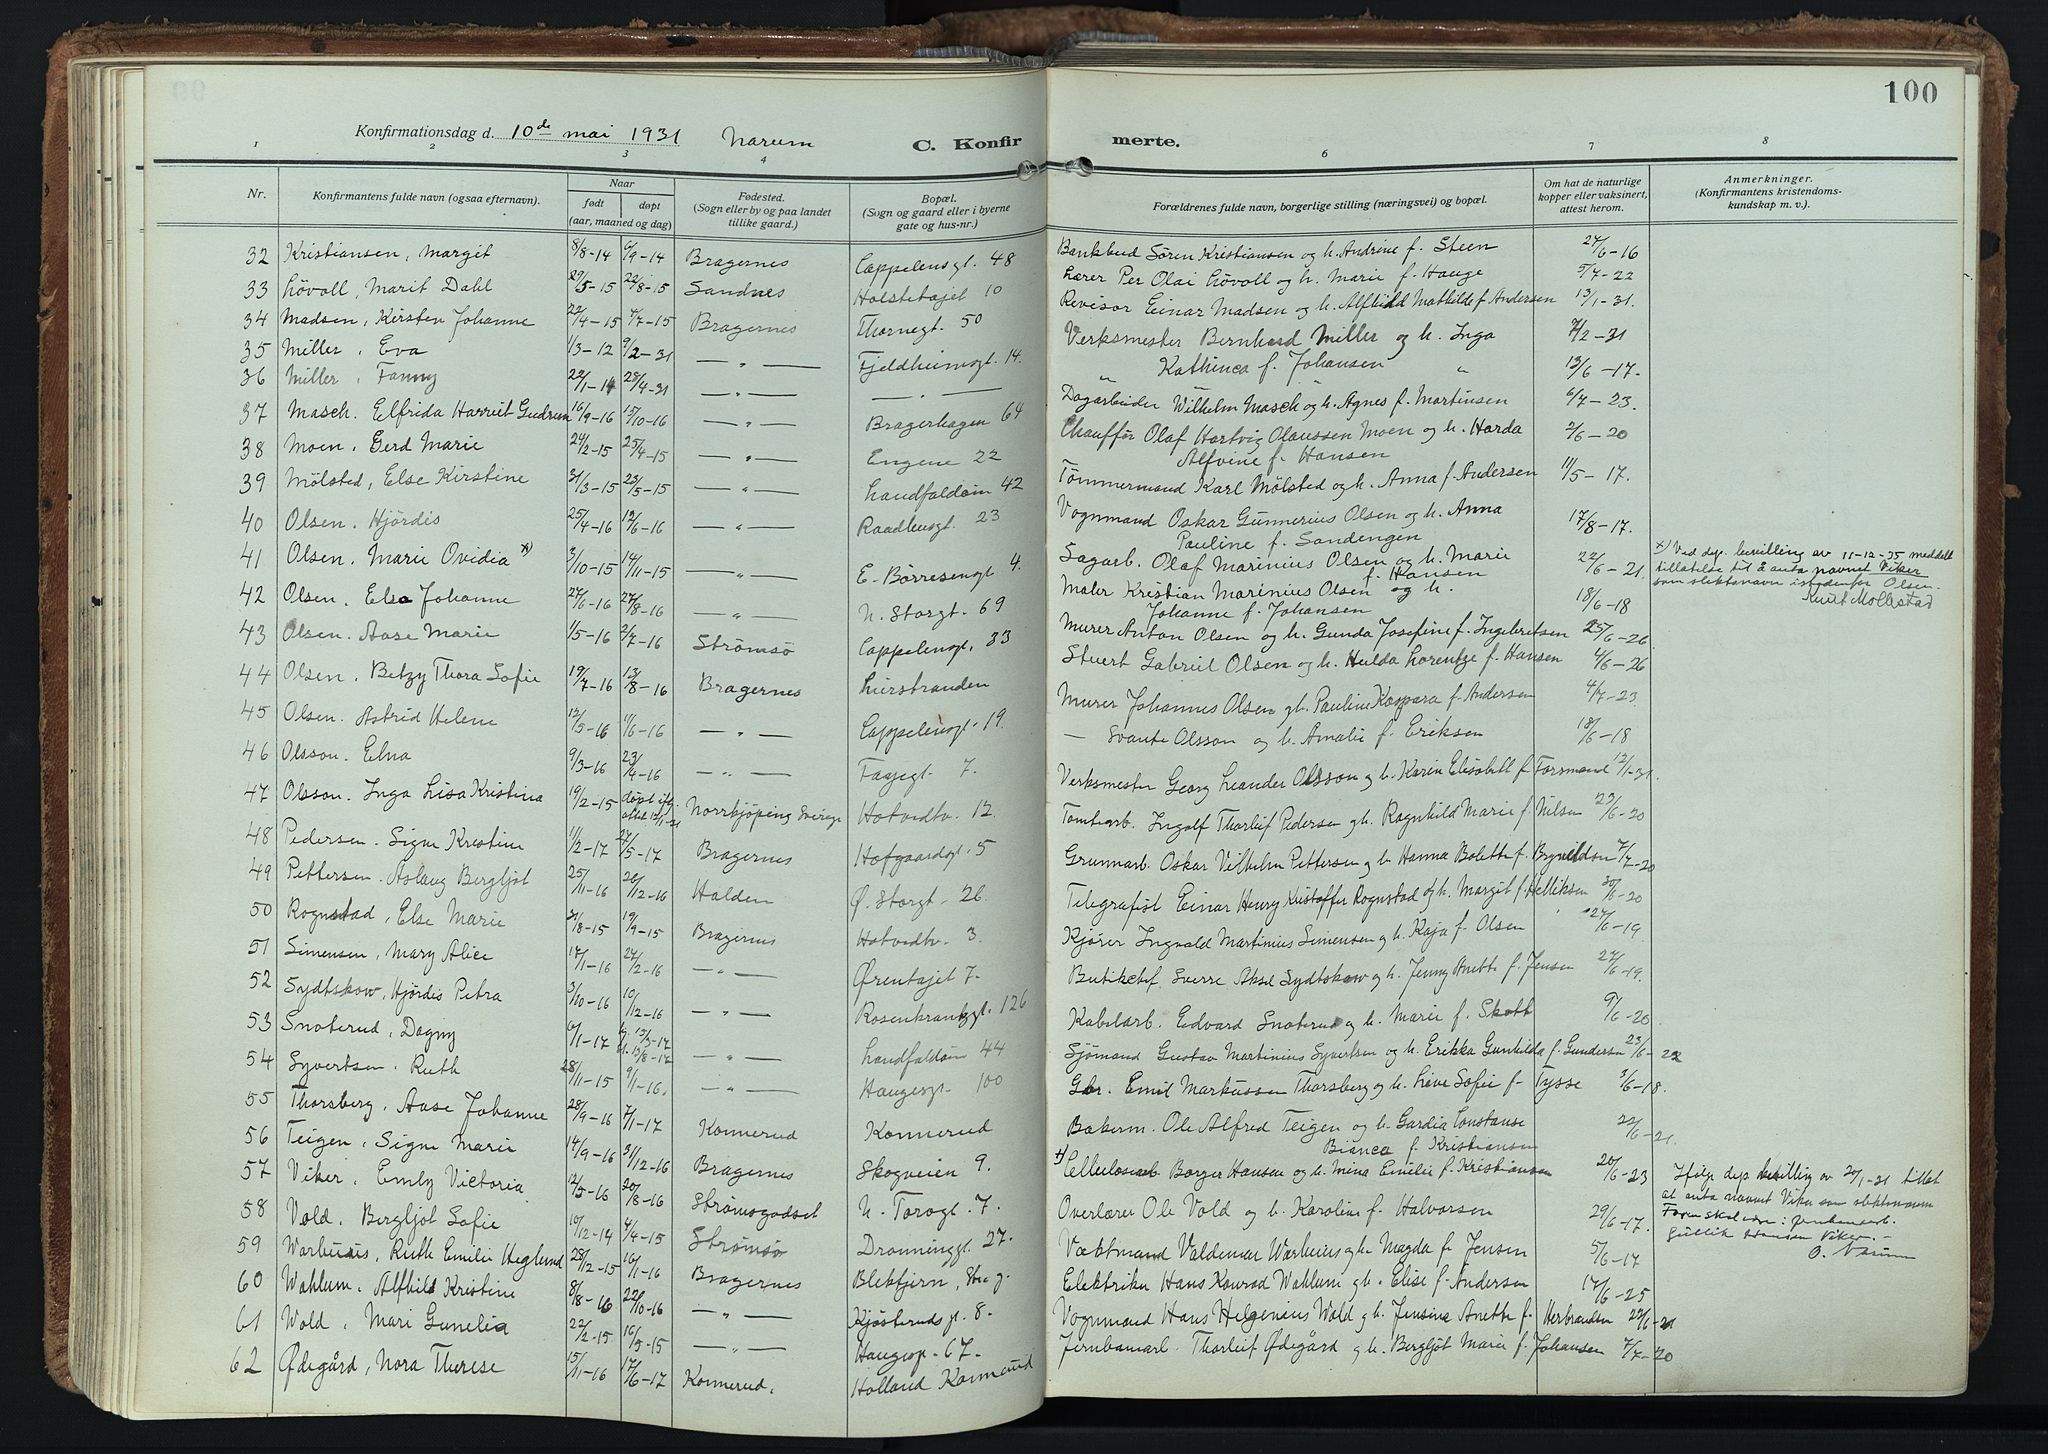 100
Konfirmationsdag d. 10de mai 1931 Narum C. Konfirmerte.
1 2 3 4 6 7 8
Nr. Konfirmantens fulde navn (ogsaa efternavn). Naar født døpt (aar, maaned og dag) Fødested. (Sogn eller by og paa landet tillike gaard.) Bopæl. (Sogn og gaard eller i byerne gate og hus-nr.) Forældrenes fulde navn, borgerlige stilling (næringsvei) og bopæl. Om hat de naturlige kopper eller vaksinert, attest herom. Anmerkninger. (Konfirmantens kristendomskundskap m. v.).
32 Kristiansen, Margit 8/8-14 6/9-14 Bragernes Cappelensgt. 48 Bankbud Søren Kristiansen og h. Andrine f. Steen 27/6-16
33 Løvoll, Marit Dahl 29/5-15 22/8-15 Sandnes Holstetajet 10 Lærer Per Olai Løvoll og h. Marie f. Hauge 5/7-22
34 Madsen, Kirsten Johanne 22/4-15 4/7-15 Bragernes Thornegt. 50 Revisor Einar Madsen og h. Alfhild Mathilde f. Andersen 13/1-31.
35 Miller, Eva 1/3-12 9/2-31 — " — Fjeldheimsgt. 14. Verksmester Bernhard Miller og h. Inga 7/2-31
36 Miller, Fanny 22/1-14 28/4-31 — " — — . — " Kathinca f. Johansen " 13/6-17.
37 Masch. Elfrida Harriet Gudrun 16/9-16 15/10-16 — " — Bragerhagen 64 Dagarbeider Wilhelm Masch og h. Agnes f. Martinsen 6/7-23.
38 Moen. Gerd Marie 24/2-15 25/4-15 — " — Engene 22 Chauffør Olaf Hartvig Olaussen Moen og h. Harda 2/6-20
Alfvine f. Hansen
39 Mølsted, Else Kirstine 31/3-15 23/5-15 — " — Landfaldøin 42 Tømmermand Karl Mølsted og h. Anna f. Andersen 11/5-17.
40 Olsen. Hjørdis 25/4-16 12/6-16 — " — Raadhusgt. 23 Vognmand Oskar Gunnerius Olsen og h. Anna 17/8-17.
Pauline f. Sandengen
41 Olsen. Marie Ovidia x) 3/10-15 14/11-15 — " — E. Børresensgt 4. Sagarb. Olaf Marinius Olsen og h. Marie 22/6-21. x) Ved dep. bevilling av 11-12-35 meddelt
f. Hansen tillatelse til å anta navnet Viker
42 Olsen. Else Johanne 27/6-16 27/8-16 — " — N. Storgt. 69 Maler Kristian Marinius Olsen og h. 18/6-18 som slektsnavn istedenfor Olsen.
Johanne f. Johansen Knut Mollestad
43 Olsen. Aase Marie 1/5-16 2/7-16 Strømsø Cappelensgt. 33 Murer Anton Olsen og h. Gunda Josefine f. Ingebretsen 25/6-26
44 Olsen. Betzy Thora Sofie 19/7-16 13/8-16 Bragernes Lierstranden Stuert Gabriel Olsen og h. Hulda Lorentze f. Hansen 4/6-26
45 Olsen. Astrid Helene 12/5-16 11/6-16 — " — Cappelensgt. 19. Murer Johannes Olsen og h. Pauline Kaspara f. Andersen 4/7-23
46 Olsson. Elna 9/3-16 23/4-16 — " — Fayegt. 7. — Svante Olsson og h. Amalie f. Eriksen 18/6-18
47 Olsson. Inga Lisa Kristina 19/2-15 døpt iflg. attest 12/1-31 Norrkjøping Sverige Hotvedtv. 12. Verksmester Georg Leander Olsson og h. Karin Elisabeth f. Forsmand 12/1-31.
48 Pedersen. Signe Kristine 11/2-17 27/5-17 Bragernes Hofgaardsgt. 5 Tomtearb. Ingolf Thorleif Pedersen og h. Ragnhild Marie f. Nilsen 23/6-20
49 Pettersen. Aslaug Bergljot 25/11-16 26/12-16 Halden Ø. Storgt. 26. Grunnarb. Oskar Vilhelm Pettersen og h. Hanna Bolette f. Bryneldsen 7/7-20
50 Rognstad, Else Marie 31/8-15 19/9-15 Bragernes Hotvedtv. 3. Telegrafist Einar Henry Kristoffer Rognstad og h. Margit f. Helliksen 30/6-20
51 Simensen, Mary Alice 17/1-16 24/2-16 — " — Ørentajet 7. Kjører Ingvald Martinius Simensen og h. Kaja f. Olsen 27/6-19
52 Sydtskow, Hjördis Petra 3/10-16 10/12-16 — " — Rosenkrantzgt. 126 Butikchef Sverre Aksel Sydtskow og h. Jenny Anette f. Jensen 27/6-19.
53 Snoterud, Dagny 6/1-17 hj. 13/3-17 st. 12/8-17 — " — Landfaldøin 44 Kabelarb. Edvard Snoterud og h. Marie f. Skott 9/6-20
54 Syvertsen. Ruth 28/11-15 9/1-16. — " — Haugesgt. 100 Sjømand Gustav Martinius Syvertsen og h. Erikka Gunhilda f. Gundersen 23/6-22
55 Thorsberg, Aase Johanne 28/9-16 7/1-17 Konnerud Konnerud Gbr. Emil Markussen Thorsberg og h. Live Sofie f. Tysse 3/6-18.
56 Teigen, Signe Marie 14/9-16 31/12-16 Bragernes Skogveien 9. Bakerm. Ole Alfred Teigen og h. Gardia Constanse 22/6-21.
Bianca f. Kristiansen
57 Viker, Emly Victoria 12/5-16 20/8-16 Strømsgodset N. Torvgt. 7. x) Cellulosearb. Borger Hansen og h. Mina Emilie f. Kristiansen 20/6-23 Ifølge dep. bevilling av 20/1-21 tillat
at anta navnet Viker som slektsnavn
58 Vold. Bergljot Sofie 10/12-14 4/4-15 Strømsø Dronninggt. 27. Overlærer Ole Vold og h. Karoline f. Halvorsen 29/6-17.
59 Warhuus, Ruth Emilie Heglund 28/12-15 16/1-16 Bragernes Blektjern, Brag. Vektmand Valdemar Warhuus og h. Magda f. Jensen 5/6-17 Gullik Hansen Viker.
O. Narum
60 Wahlum. Alfhild Kristine 8/8-16 22/10-16 — " — Kjøsterudsgt. 8. Elektriker Hans Konrad Wahlum og h. Elise f. Andersen 17/6-25
61 Wold, Mari Gunelia 22/2-15 16/5-15 — " — Haugesgt. 67. Vognmand Hans Helgenius Wold og h. Jensine Anette f. Herbrandsen 22/6-21
62 Ødegård, Nora Therese 15/11-16 17/6-17 Konnerud, Holland Konnerud Jernbanearb. Thorleif Ødegård og h. Bergljot Marie f. Johansen 7/7-20